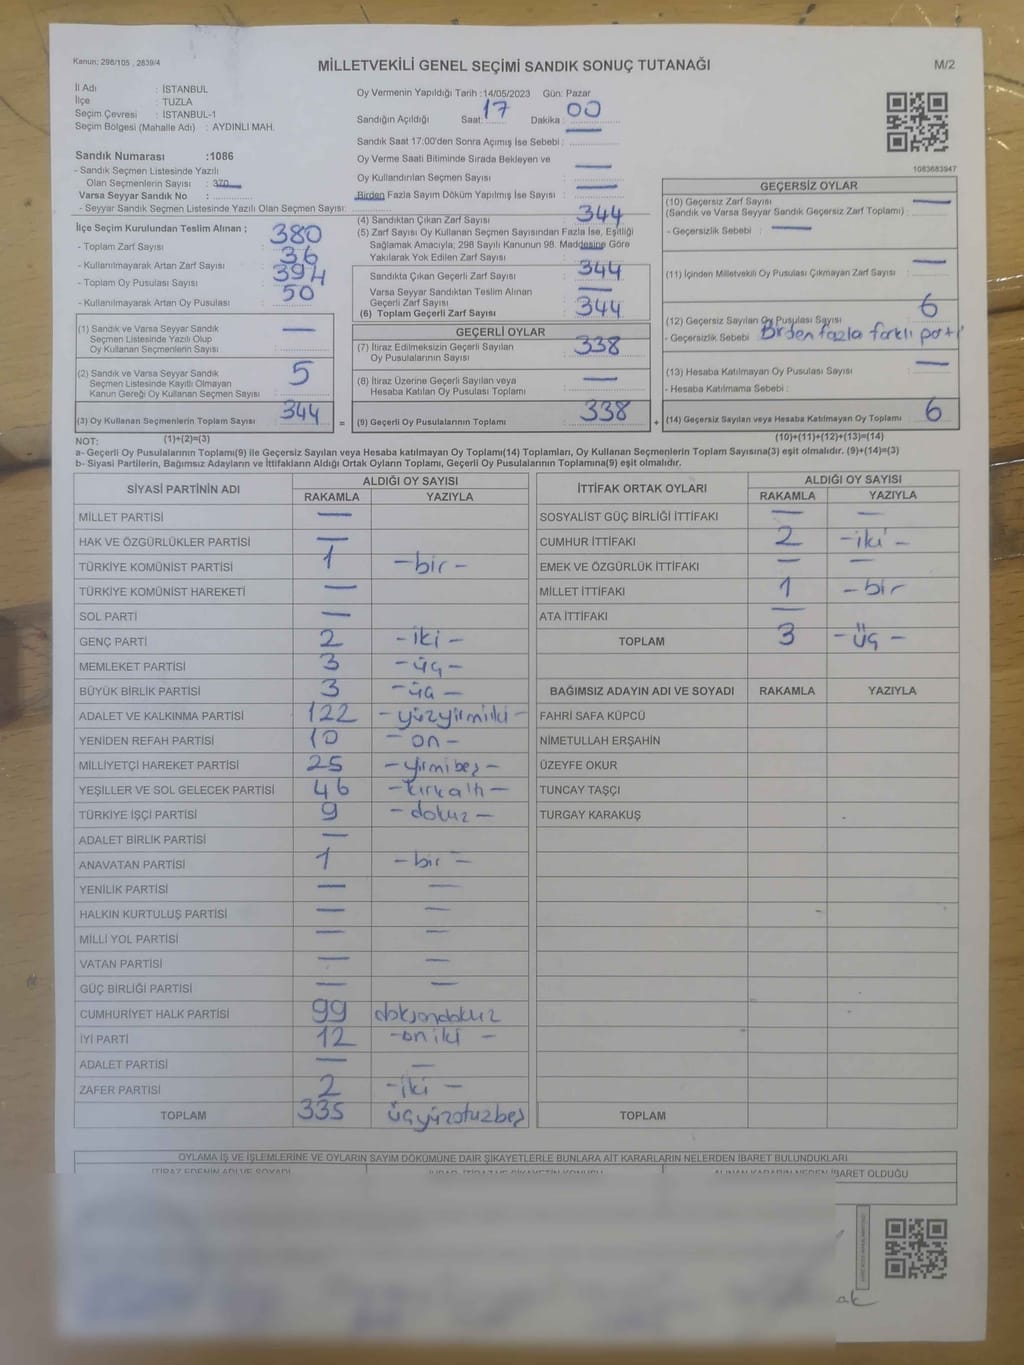 Kanun; 298/105 , 2839/4
MİLLETVEKİLİ GENEL SEÇİMİ SANDIK SONUÇ TUTANAĞI
M/2
İl Adı : İSTANBUL
İlçe : TUZLA
Seçim Çevresi : İSTANBUL-1
Seçim Bölgesi (Mahalle Adı) : AYDINLI MAH.
Sandık Numarası :1086
- Sandık Seçmen Listesinde Yazılı
Olan Seçmenlerin Sayısı : 370
Varsa Seyyar Sandık No :
- Seyyar Sandık Seçmen Listesinde Yazılı Olan Seçmen Sayısı:
Oy Vermenin Yapıldığı Tarih :14/05/2023 Gün: Pazar
Sandığın Açıldığı Saat: 17 Dakika : 00
Sandık Saat 17:00'den Sonra Açımış İse Sebebi :
Oy Verme Saati Bitiminde Sırada Bekleyen ve
Oy Kullandırılan Seçmen Sayısı : —
Birden Fazla Sayım Döküm Yapılmış İse Sayısı : —
1083683947
İlçe Seçim Kurulundan Teslim Alınan ;
- Toplam Zarf Sayısı : 380
- Kullanılmayarak Artan Zarf Sayısı : 36
- Toplam Oy Pusulası Sayısı : 394
- Kullanılmayarak Artan Oy Pusulası : 50
(1) Sandık ve Varsa Seyyar Sandık
Seçmen Listesinde Yazılı Olup
Oy Kullanan Seçmenlerin Sayısı : —
(2) Sandık ve Varsa Seyyar Sandık
Seçmen Listesinde Kayıtlı Olmayan
Kanun Gereği Oy Kullanan Seçmen Sayısı : 5
(3) Oy Kullanan Seçmenlerin Toplam Sayısı : 344
(4) Sandıktan Çıkan Zarf Sayısı : 344
(5) Zarf Sayısı Oy Kullanan Seçmen Sayısından Fazla İse, Eşitliği
Sağlamak Amacıyla; 298 Sayılı Kanunun 98. Maddesine Göre
Yakılarak Yok Edilen Zarf Sayısı :
Sandıkta Çıkan Geçerli Zarf Sayısı : 344
Varsa Seyyar Sandıktan Teslim Alınan
Geçerli Zarf Sayısı : —
(6) Toplam Geçerli Zarf Sayısı : 344
GEÇERLİ OYLAR
(7) İtiraz Edilmeksizin Geçerli Sayılan
Oy Pusulalarının Sayısı : 338
(8) İtiraz Üzerine Geçerli Sayılan veya
Hesaba Katılan Oy Pusulası Toplamı : —
= (9) Geçerli Oy Pusulalarının Toplamı : 338 +
GEÇERSİZ OYLAR
(10) Geçersiz Zarf Sayısı
(Sandık ve Varsa Seyyar Sandık Geçersiz Zarf Toplamı) : —
- Geçersizlik Sebebi : —
(11) İçinden Milletvekili Oy Pusulası Çıkmayan Zarf Sayısı : —
(12) Geçersiz Sayılan Oy Pusulası Sayısı : 6
- Geçersizlik Sebebi : Birden fazla farklı parti
(13) Hesaba Katılmayan Oy Pusulası Sayısı : —
- Hesaba Katılmama Sebebi :
(14) Geçersiz Sayılan veya Hesaba Katılmayan Oy Toplamı : 6
NOT: (1)+(2)=(3)
(10)+(11)+(12)+(13)=(14)
a- Geçerli Oy Pusulalarının Toplamı(9) ile Geçersiz Sayılan veya Hesaba katılmayan Oy Toplamı(14) Toplamları, Oy Kullanan Seçmenlerin Toplam Sayısına(3) eşit olmalıdır. (9)+(14)=(3)
b- Siyasi Partilerin, Bağımsız Adayların ve İttifakların Aldığı Ortak Oyların Toplamı, Geçerli Oy Pusulalarının Toplamına(9) eşit olmalıdır.
SİYASİ PARTİNİN ADI ALDIĞI OY SAYISI
RAKAMLA YAZIYLA
MİLLET PARTİSİ —
HAK VE ÖZGÜRLÜKLER PARTİSİ —
TÜRKİYE KOMÜNİST PARTİSİ 1 -bir-
TÜRKİYE KOMÜNİST HAREKETİ —
SOL PARTİ —
GENÇ PARTİ 2 -iki-
MEMLEKET PARTİSİ 3 -üç-
BÜYÜK BİRLİK PARTİSİ 3 -üç-
ADALET VE KALKINMA PARTİSİ 122 -yüzyirmiiki-
YENİDEN REFAH PARTİSİ 10 -on-
MİLLİYETÇİ HAREKET PARTİSİ 25 -yirmibeş-
YEŞİLLER VE SOL GELECEK PARTİSİ 46 -kırkaltı-
TÜRKİYE İŞÇİ PARTİSİ 9 -dokuz-
ADALET BİRLİK PARTİSİ —
ANAVATAN PARTİSİ 1 -bir-
YENİLİK PARTİSİ — —
HALKIN KURTULUŞ PARTİSİ — —
MİLLİ YOL PARTİSİ — —
VATAN PARTİSİ — —
GÜÇ BİRLİĞİ PARTİSİ — —
CUMHURİYET HALK PARTİSİ 99 doksandokuz
İYİ PARTİ 12 -oniki-
ADALET PARTİSİ — —
ZAFER PARTİSİ 2 -iki-
TOPLAM 335 üçyüzotuzbeş
İTTİFAK ORTAK OYLARI ALDIĞI OY SAYISI
RAKAMLA YAZIYLA
SOSYALİST GÜÇ BİRLİĞİ İTTİFAKI — —
CUMHUR İTTİFAKI 2 -iki-
EMEK VE ÖZGÜRLÜK İTTİFAKI — —
MİLLET İTTİFAKI 1 -bir
ATA İTTİFAKI —
TOPLAM 3 -üç-
BAĞIMSIZ ADAYIN ADI VE SOYADI RAKAMLA YAZIYLA
FAHRİ SAFA KÜPCÜ
NİMETULLAH ERŞAHİN
ÜZEYFE OKUR
TUNCAY TAŞÇI
TURGAY KARAKUŞ
TOPLAM
OYLAMA İŞ VE İŞLEMLERİNE VE OYLARIN SAYIM DÖKÜMÜNE DAİR ŞİKAYETLERLE BUNLARA AİT KARARLARIN NELERDEN İBARET BULUNDUKLARI
İTİRAZ EDENİN ADI VE SOYADI
ALINAN KARARIN NEDEN İBARET OLDUĞU